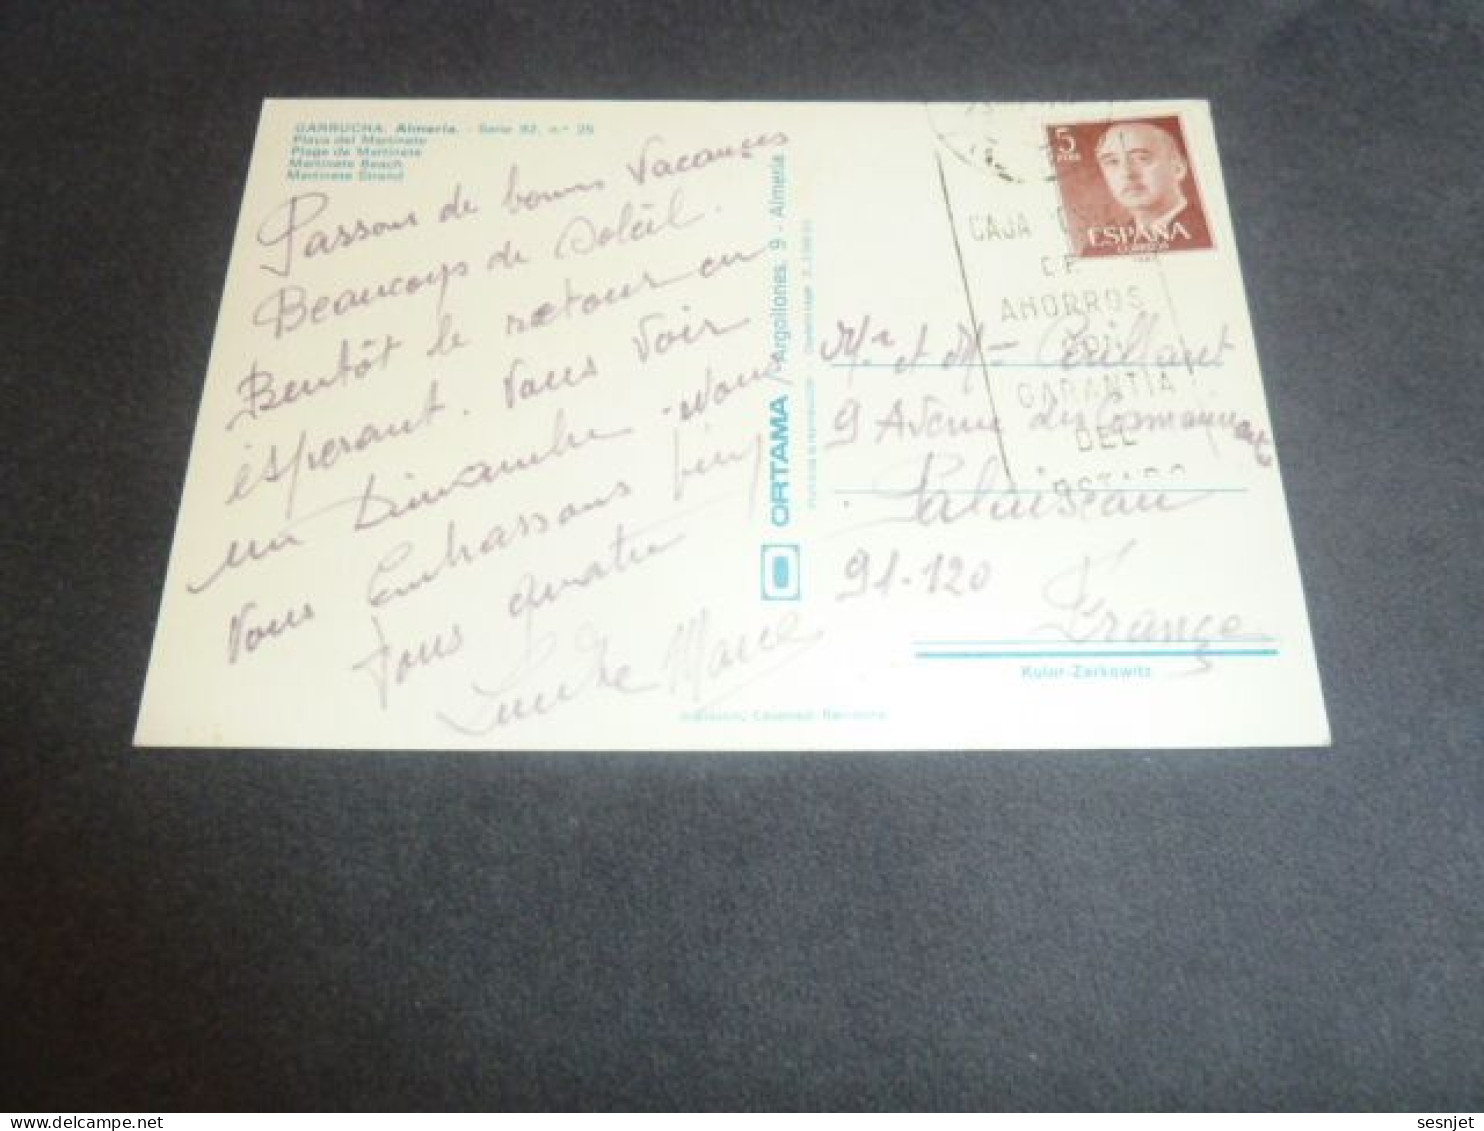 GARRUCHA. Almería. - Serie 92, n.º 25
Playa del Martinete
Plage de Martinete
Martinete Beach
Martinete Strand
Passons de bonnes Vacances
Beaucoups de Soleil.
Bentôt le retour en
èsperant. Vous Voir
un Dimanche. Nous
Vous Embrassons
tous quatre
Marie
ORTAMA/Argollones, 9 - Almería
5
PTAS
ESPAÑA
CORREOS
CAJA
DE
AHORROS
CON
GARANTIA
DEL
ESTADO
Mr et Mme
9 Avenue des
Palaiseau
91-120
France
Kolor-Zerkowitz